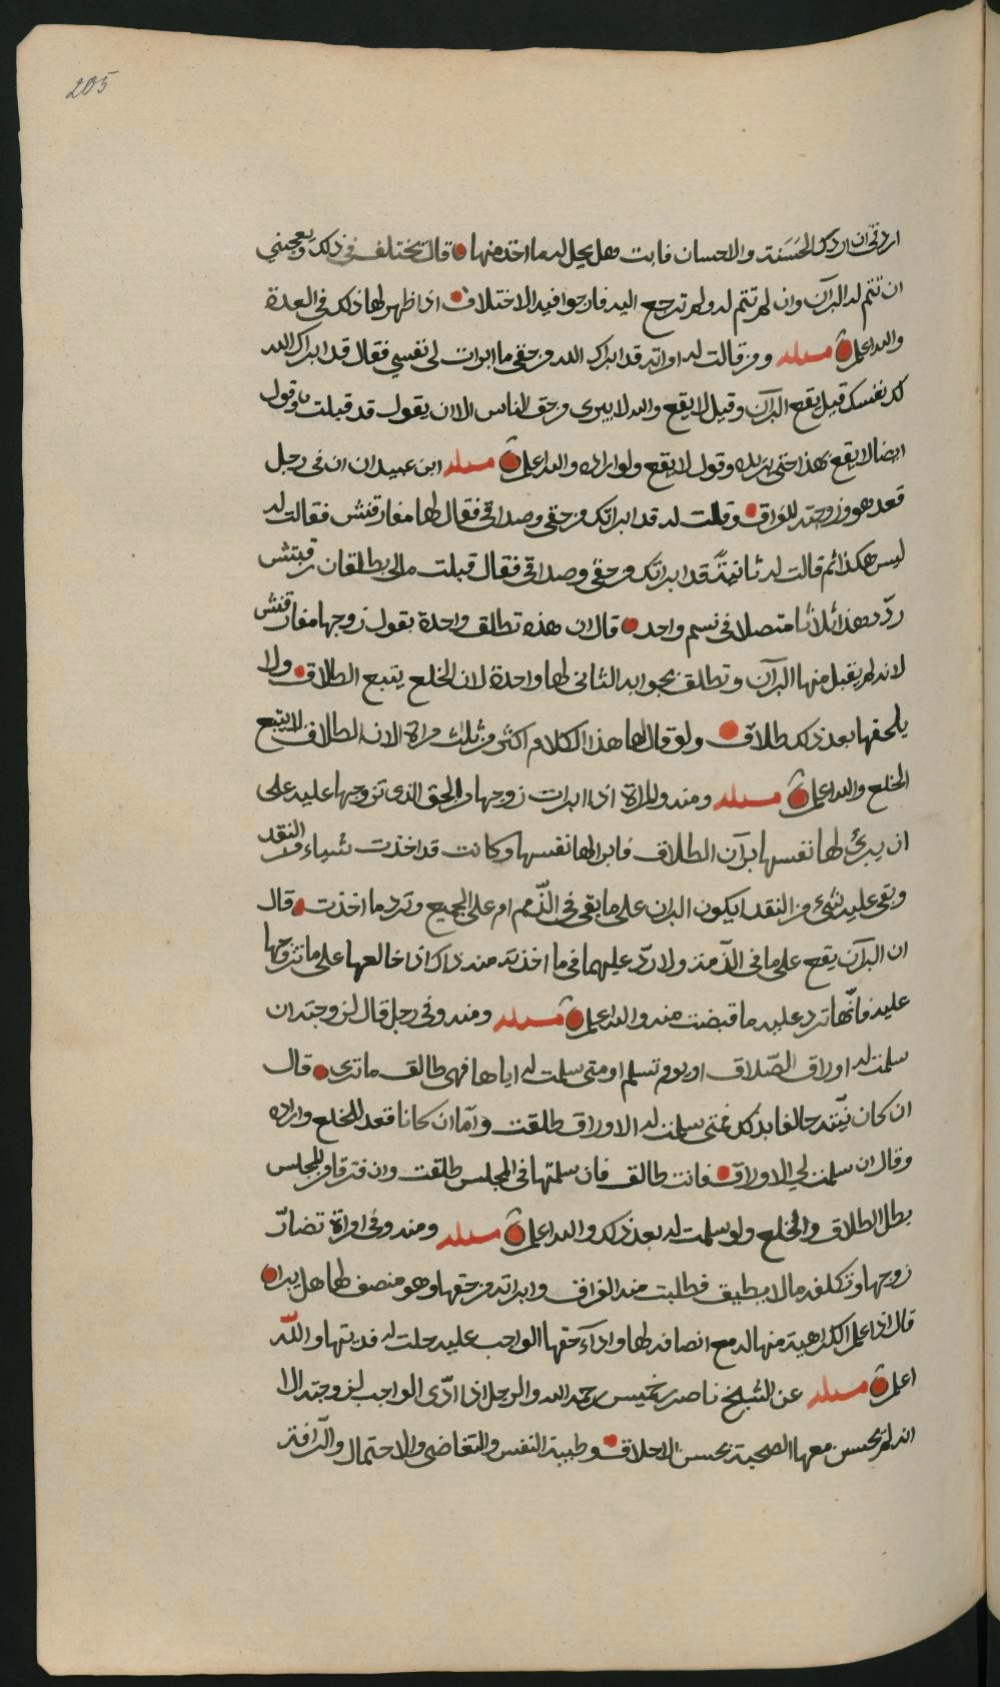 205
اردتي ان اردك الحسنة والاحسان فابت هل يحل له ما اخذ منها قال يختلف في ذلك ويعجبني
ان تتم له البرآن وان لم تتم له ولم ترجع اليه فارجوا فيه الاختلاف اذا ظهر لها ذلك في العدة
والله اعلم مسئله ومن قالت له امراته قد ابراك الله من حقي ما ابرات لي نفسي فقال قد ابراك الله
لك نفسك قيل يقع البرآن وقيل لا يقع والله لا يبرى من حق الناس الا ان يقول قد قبلت وقول
ايضا لا يقع بهذا حتى يريده وقول لا يقع ولو اراده والله اعلم مسئله ابن عبيدان ان في رجل
قعد هو وزوجته للفراق وقلت له قد ابراتك من حقي وصداقي فقال لها مفارقتش فقالت له
ليس هكذا ثم قالت له ثانية قد ابراتك من حقي وصداقي فقال قبلت مالي بطلقان رقبتش
ردّد هذا ثلاثا متصلا في نسم واحد قال ان هذه تطلق واحدة بقول زوجها مفارقتش
لانه لم يقبل منها البرآن وتطلق بجوابه الثاني لها واحدة لان الخلع يتبع الطلاق ولا
يلحقها بعد ذلك طلاق ولو قال لها هذا الكلام اكثر من ثلث مراة لان الطلاق لا يتبع
الخلع والله اعلم مسئله ومنه والمراة اذا ابرات زوجها من الحق الذي تزوجها عليه على
ان يبرئ لها نفسها برآن الطلاق فابرا لها نفسها وكانت قد اخذت شياء من النقد
وبقي عليه شيء من النقد ايكون البران على ما بقي في الذّمم ام على الجميع وترد ما اخذت قال
ان البرآن يقع على ما في الذّمة ولا ردّ عليهما في ما اخذته منه ذاك اذا خالعها على ما تزوجها
عليه فانّها ترد عليه ما قبضت منه والله اعلم مسئله ومنه وفي رجل قال لزوجته ان
سلمت له اوراق الصّداق او يوم تسلم او متى سلمت له اياها فهي طالق ما ترى قال
ان كان نيّته حالفا بذلك فمتى سلمت له الاوراق طلقت وآمّا ان كانا قعد للخلع واراده
وقال ان سلمت لي الاوراق فانت طالق فان سلمتها في المجلس طلقت وان فترقا من المجلس
بطل الطلاق والخلع ولو سلمت له بعد ذلك والله اعلم مسئله ومنه وفي امراة تضارّ
زوجها وتكلفه مالا يطيق فطلبت منه الفراق وابراته من حقها وهو منصف لها هل يبرا
قال اذا علم الكراهية منها له مع انصافه لها واداء حقها الواجب عليه حلت له فديتها والله
اعلم مسئله عن الشيخ ناصر بن خميس رحمه الله والرجل اذا ادّى الواجب لزوجته الا
انه لم يحسن معها الصحبة بحسن الاخلاق وطيبة النفس والتغاضي والاحتمال والرافة